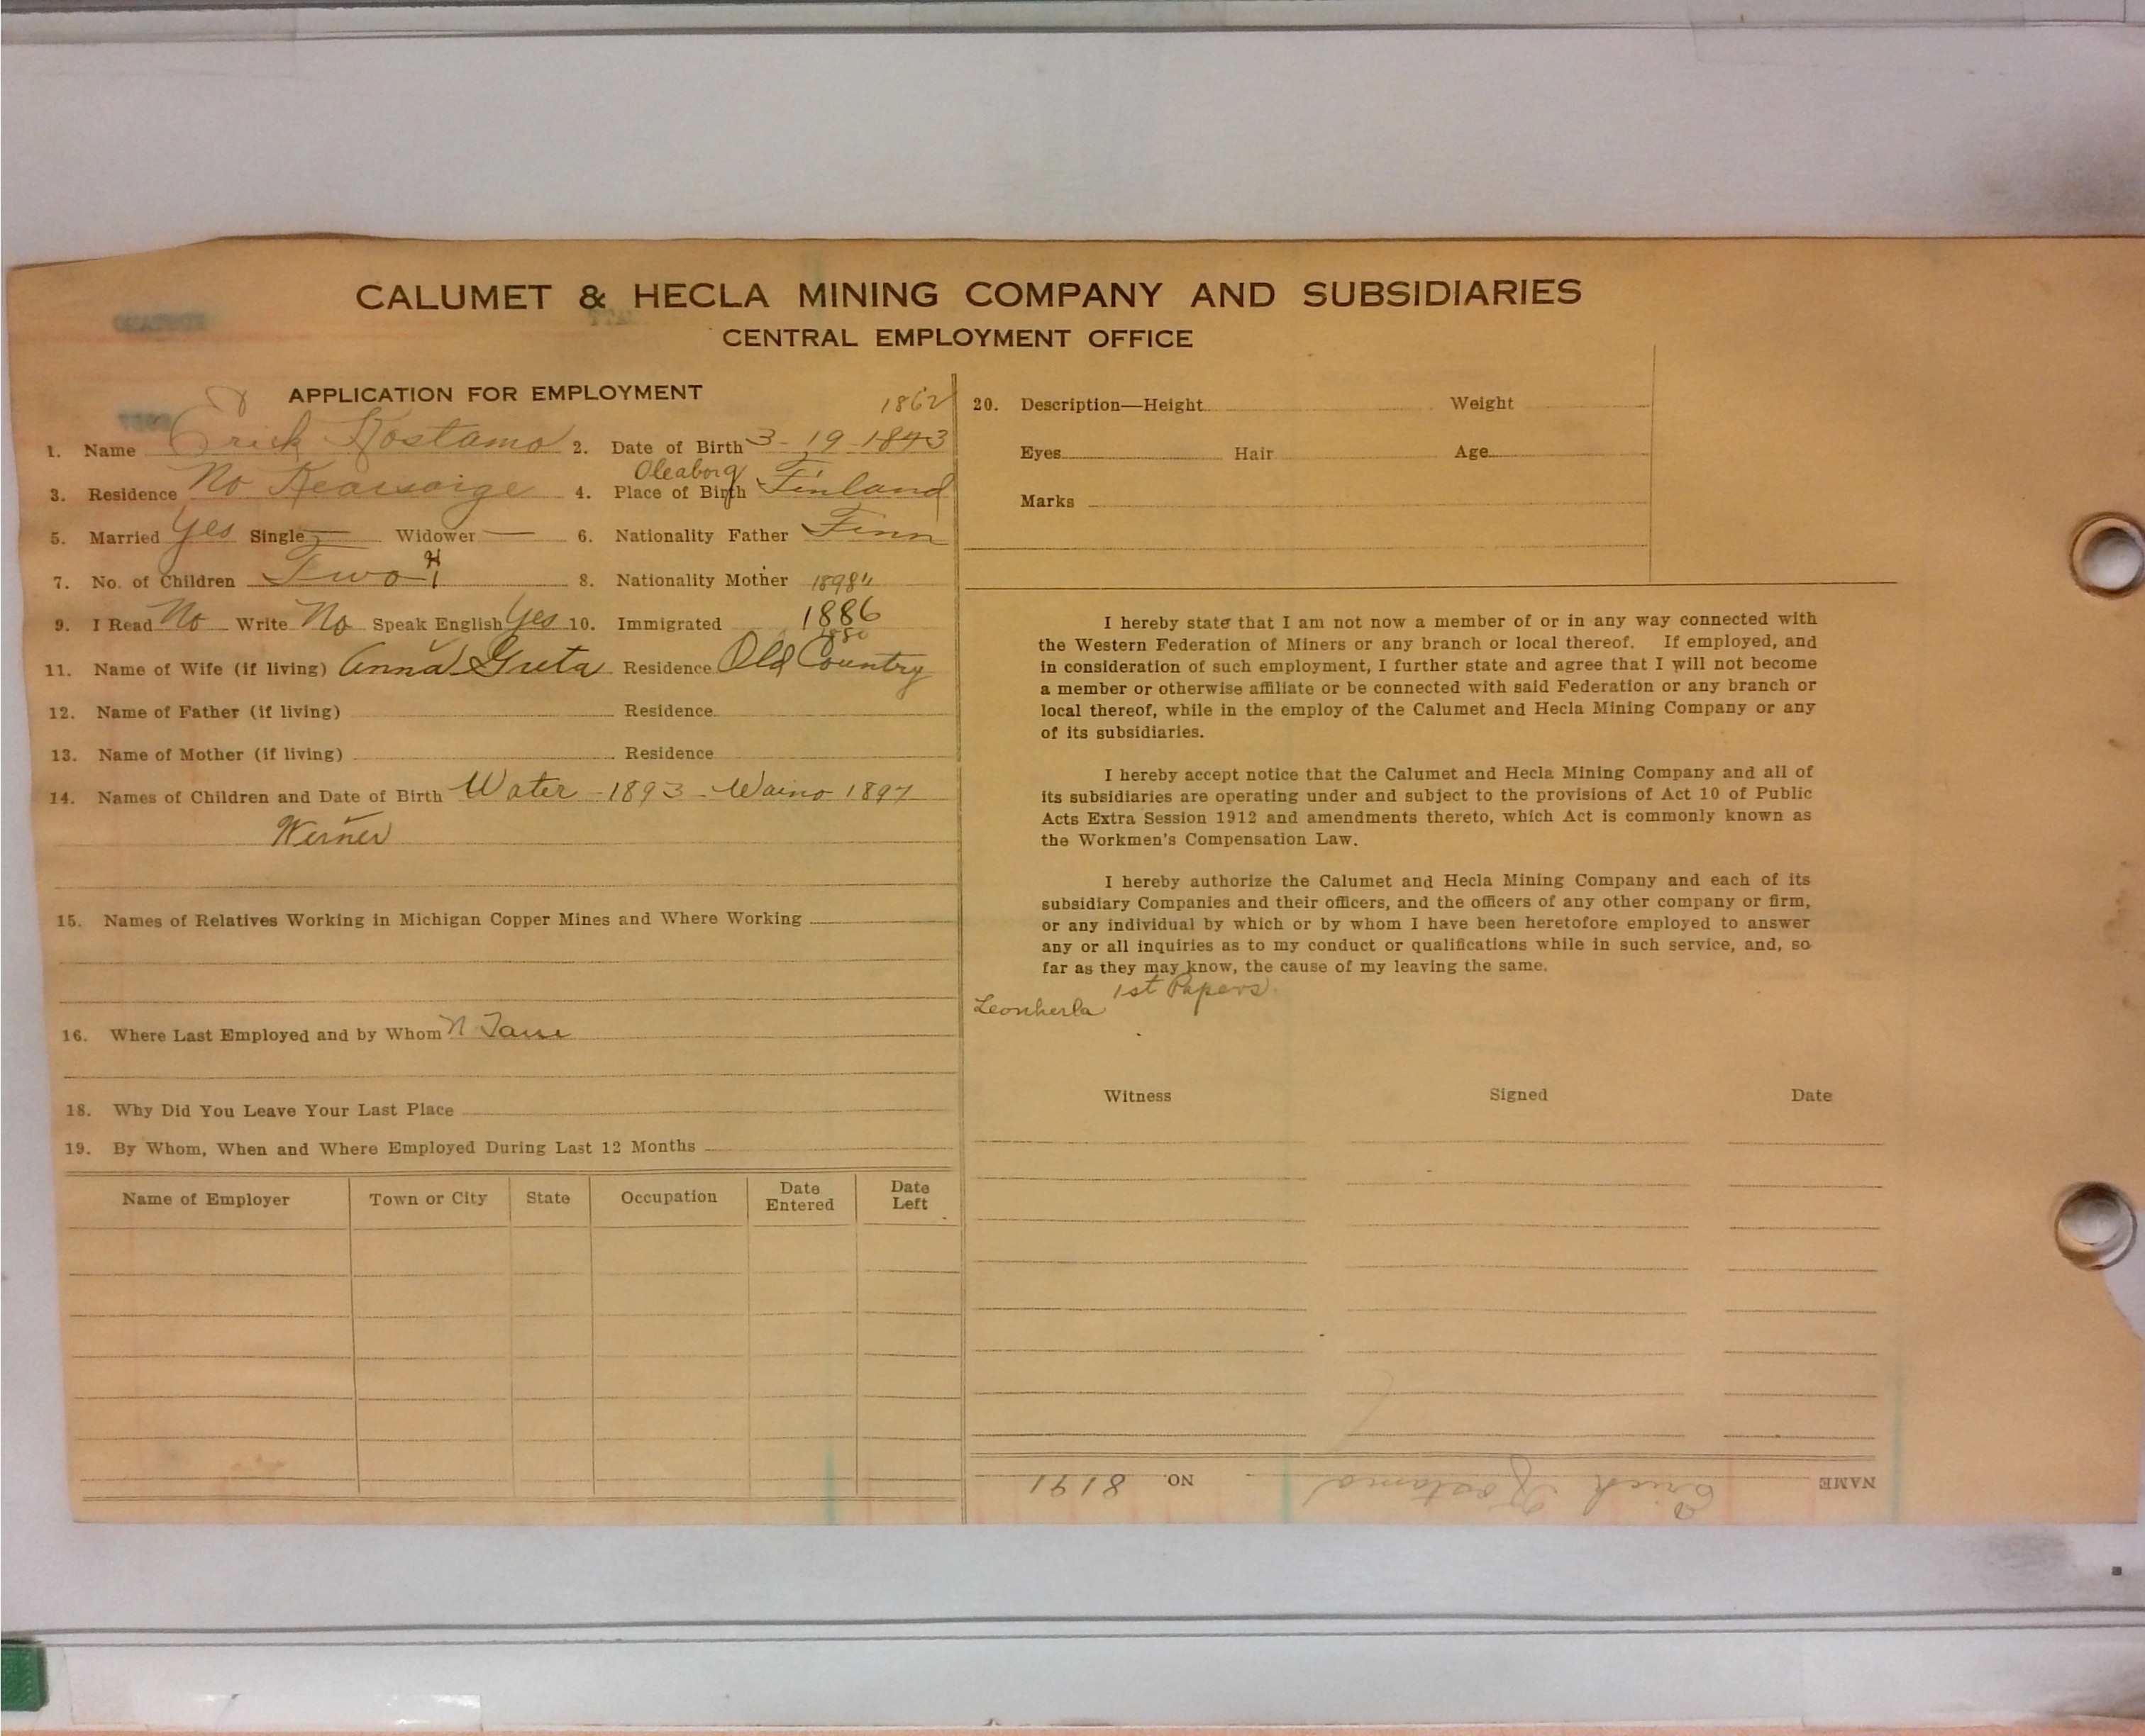 CALUMET & HECLA MINING COMPANY AND SUBSIDIARIES
CENTRAL EMPLOYMENT OFFICE
APPLICATION FOR EMPLOYMENT
1862
1. Name Erick Kostamo 2. Date of Birth 3-19-1843
Oleaborg
3. Residence No Kearsarge 4. Place of Birth Finland
5. Married Yes Single — Widower — 6. Nationality Father Finn
7. No. of Children Two 8. Nationality Mother
9. I Read No Write No Speak English Yes 10. Immigrated 1886
1880
11. Name of Wife (if living) Anna Greta Residence Old Country
12. Name of Father (if living) Residence
13. Name of Mother (if living) Residence
14. Names of Children and Date of Birth Water - 1893 - Waino 1897
Werner
15. Names of Relatives Working in Michigan Copper Mines and Where Working
16. Where Last Employed and by Whom N
18. Why Did You Leave Your Last Place
19. By Whom, When and Where Employed During Last 12 Months
Name of Employer Town or City State Occupation Date Entered Date Left
20. Description—Height Weight
Eyes Hair Age
Marks
I hereby state that I am not now a member of or in any way connected with
the Western Federation of Miners or any branch or local thereof. If employed, and
in consideration of such employment, I further state and agree that I will not become
a member or otherwise affiliate or be connected with said Federation or any branch or
local thereof, while in the employ of the Calumet and Hecla Mining Company or any
of its subsidiaries.
I hereby accept notice that the Calumet and Hecla Mining Company and all of
its subsidiaries are operating under and subject to the provisions of Act 10 of Public
Acts Extra Session 1912 and amendments thereto, which Act is commonly known as
the Workmen's Compensation Law.
I hereby authorize the Calumet and Hecla Mining Company and each of its
subsidiary Companies and their officers, and the officers of any other company or firm,
or any individual by which or by whom I have been heretofore employed to answer
any or all inquiries as to my conduct or qualifications while in such service, and, so
far as they may know, the cause of my leaving the same.
1st Papers
Witness Signed Date
NAME Erick Kostamo NO. 8191